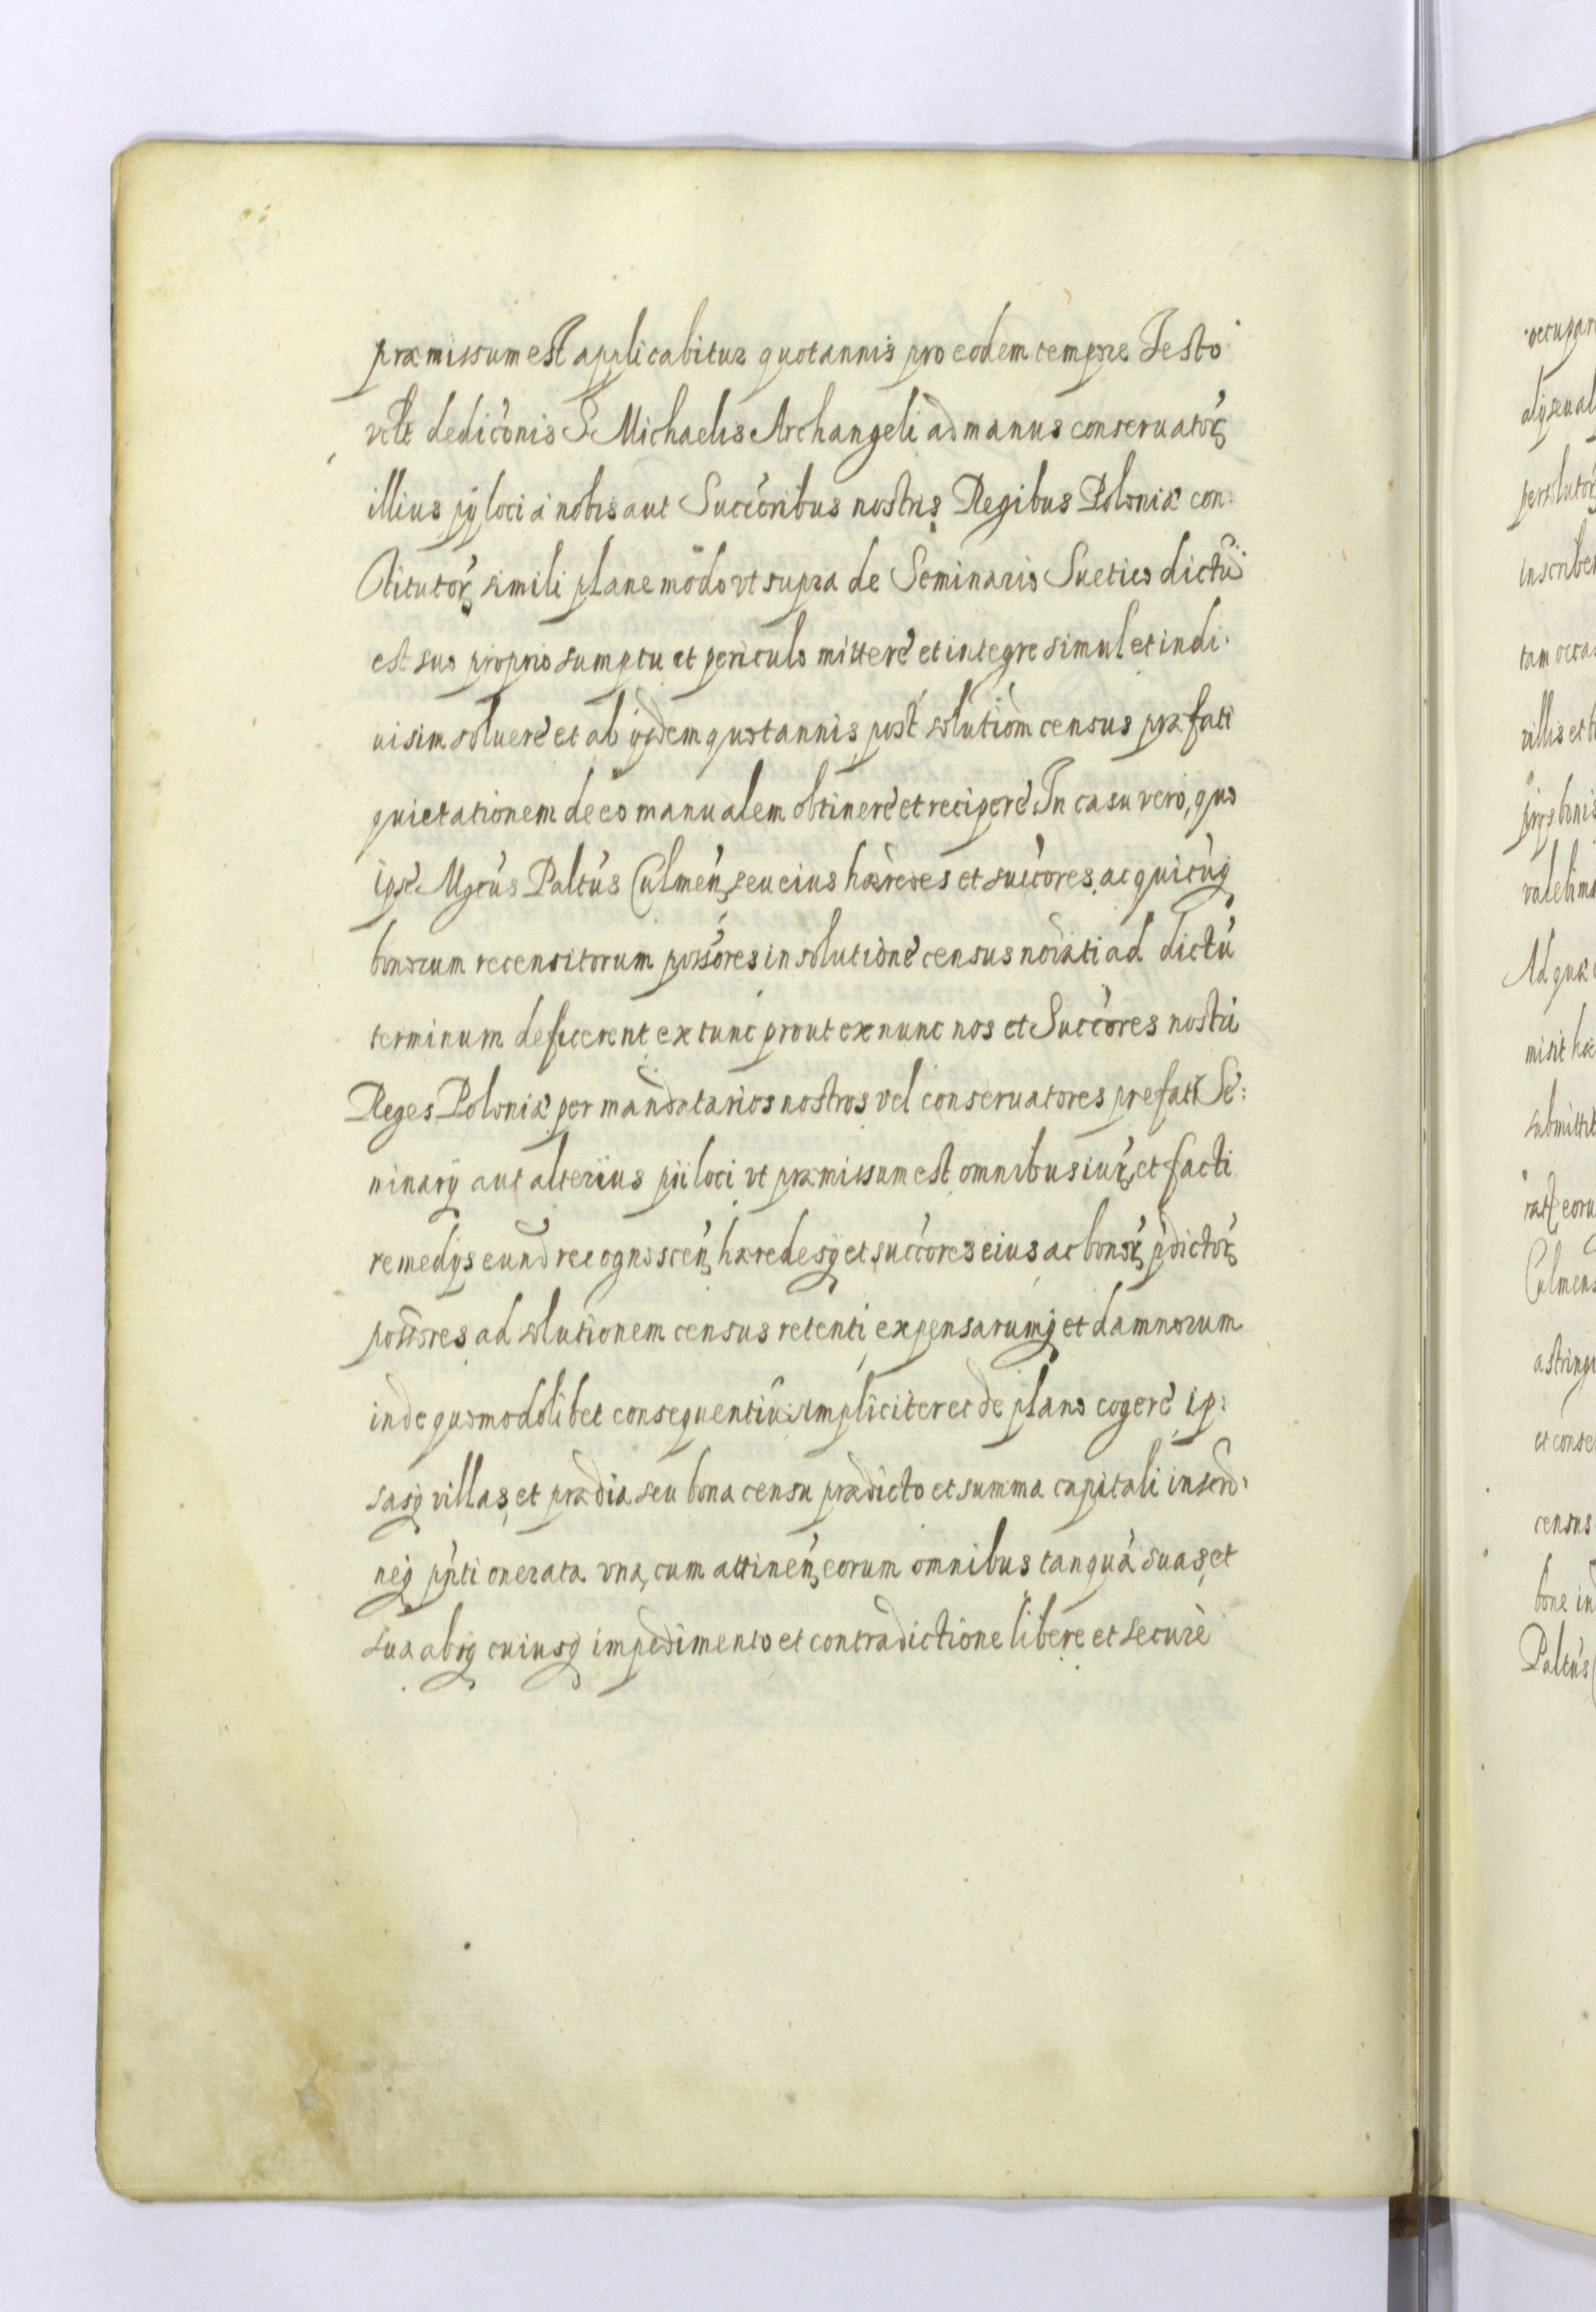 præmissum est applicabitur quotannis pro eodem tempore Festo
vclt dedicõnis S. Michaelis Archangeli ad manus conseruator̃
illius pij loci à nobis aut Succõribus nostris Regibus Poloniæ con:
stitutor̃ simili plane modo vt supra de Seminario Suetico dictũ
est suo proprio sumptu et periculo mittere et integre simul et indi:
uisim soluere et ab ijsdem quotannis post solutiõm census præfati
quietationem de eo manualem obtinere et recipere In casu vero, quo
ipse Mgcus Paltus Culmeñ, seu eius hæredes et succores ac quicũq
bonorum recensitorum possõres in solutione census noĩati ad dictũ
terminum deficerent ex tunc prout ex nunc nos et Succõres nostri
Reges Poloniæ per mandatarios nostros vel conseruatores prefati Se:
minarij aut alterius pii loci vt præmissum est omnibus iur̃ et facti
remedijs eund recognosceñ hæredesq et succores eius ac bonor̃ pdictor̃
possores ad solutionem census retenti expensarumq et damnorum
inde quomodolibet consequentiũ simpliciter et de plano cogere ip:
sasq villas et prædia seu bona censu prædicto et summa capitali inscrip:
neq pñti onerata vna cum attineñ eorum omnibus tanquã suas et
sua absq cuiusq impedimento et contradictione libere et secure
occupar
alij seu al
persolutor̃
inscriben
tam occas
villis et b
valebim
Ad quæ
misit hæ
submittit
eoru
Culmens
astringi
et conse
census
bone in
Paltus